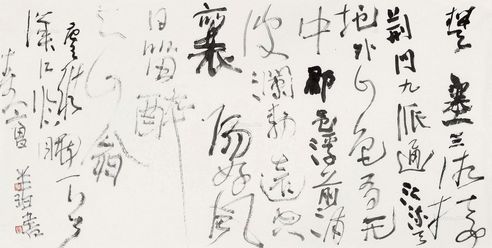 楚塞三湘接
荆门九派通江流天
地外山色有无
中郡邑浮前浦
波澜動遠空
襄陽好風
日留醉
与山翁
漢江临眺